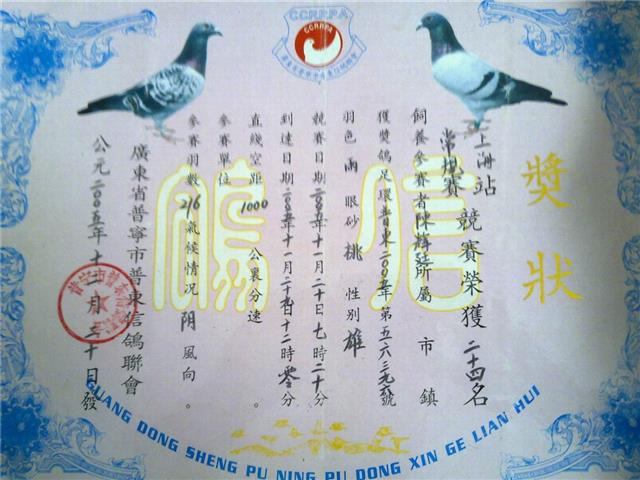 CCRRPA
CCRRPA
獎狀
信鴿
上海站
常規賽 競賽榮獲 二十四名
飼養參賽者陳 所屬 市 鎮
獲獎鴿足環普東二〇〇五年第五六三 號
羽色 雨 眼砂 桃 性別 雄
競賽日期二〇〇五年十一月二十日七時二十分
到達日期二〇〇五年十一月二十 日十二時零分
直綫空距 1000 公裏分速 。
參賽單位
參賽羽數 216 氣候情況 阴 風向 。
廣東省普寧市普東信鴿聯會
公元二〇〇五年十二月三十日發
GUANG DONG SHENG PU NING PU DONG XIN GE LIAN HUI